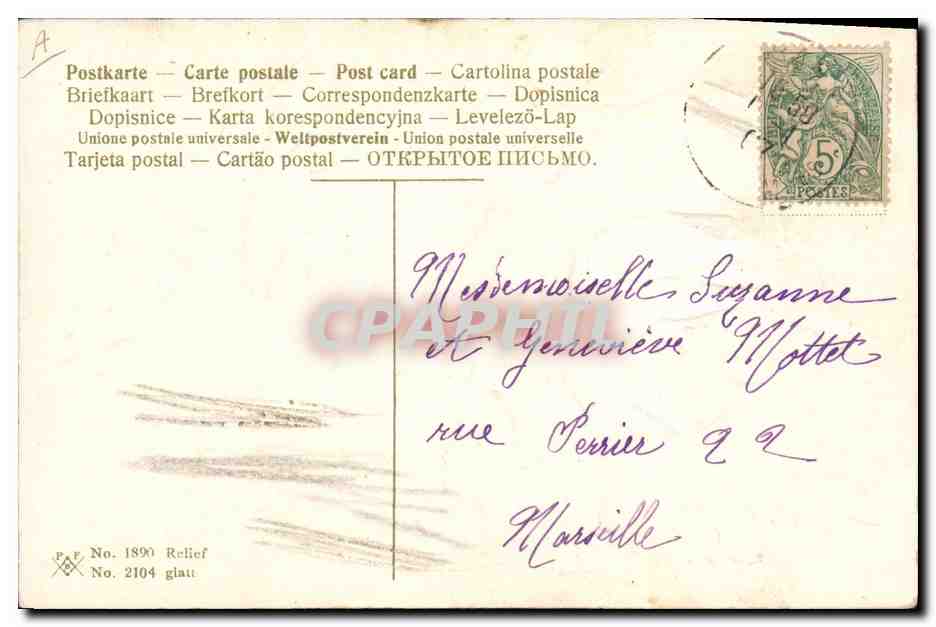 A
Postkarte — Carte postale — Post card — Cartolina postale
Briefkaart — Brefkort — Correspondenzkarte — Dopisnica
Dopisnice — Karta korespondencyjna — Levelezö-Lap
Unione postale universale - Weltpostverein - Union postale universelle
Tarjeta postal — Cartão postal — ОТКРЫТОЕ ПИСЬМО.
5c
POSTES
Mesdemoiselles Suzanne
et Geneviève Mottet
rue Perrier 22
Marseille
CPAPHIL
P F
B
No. 1890 Relief
No. 2104 glatt